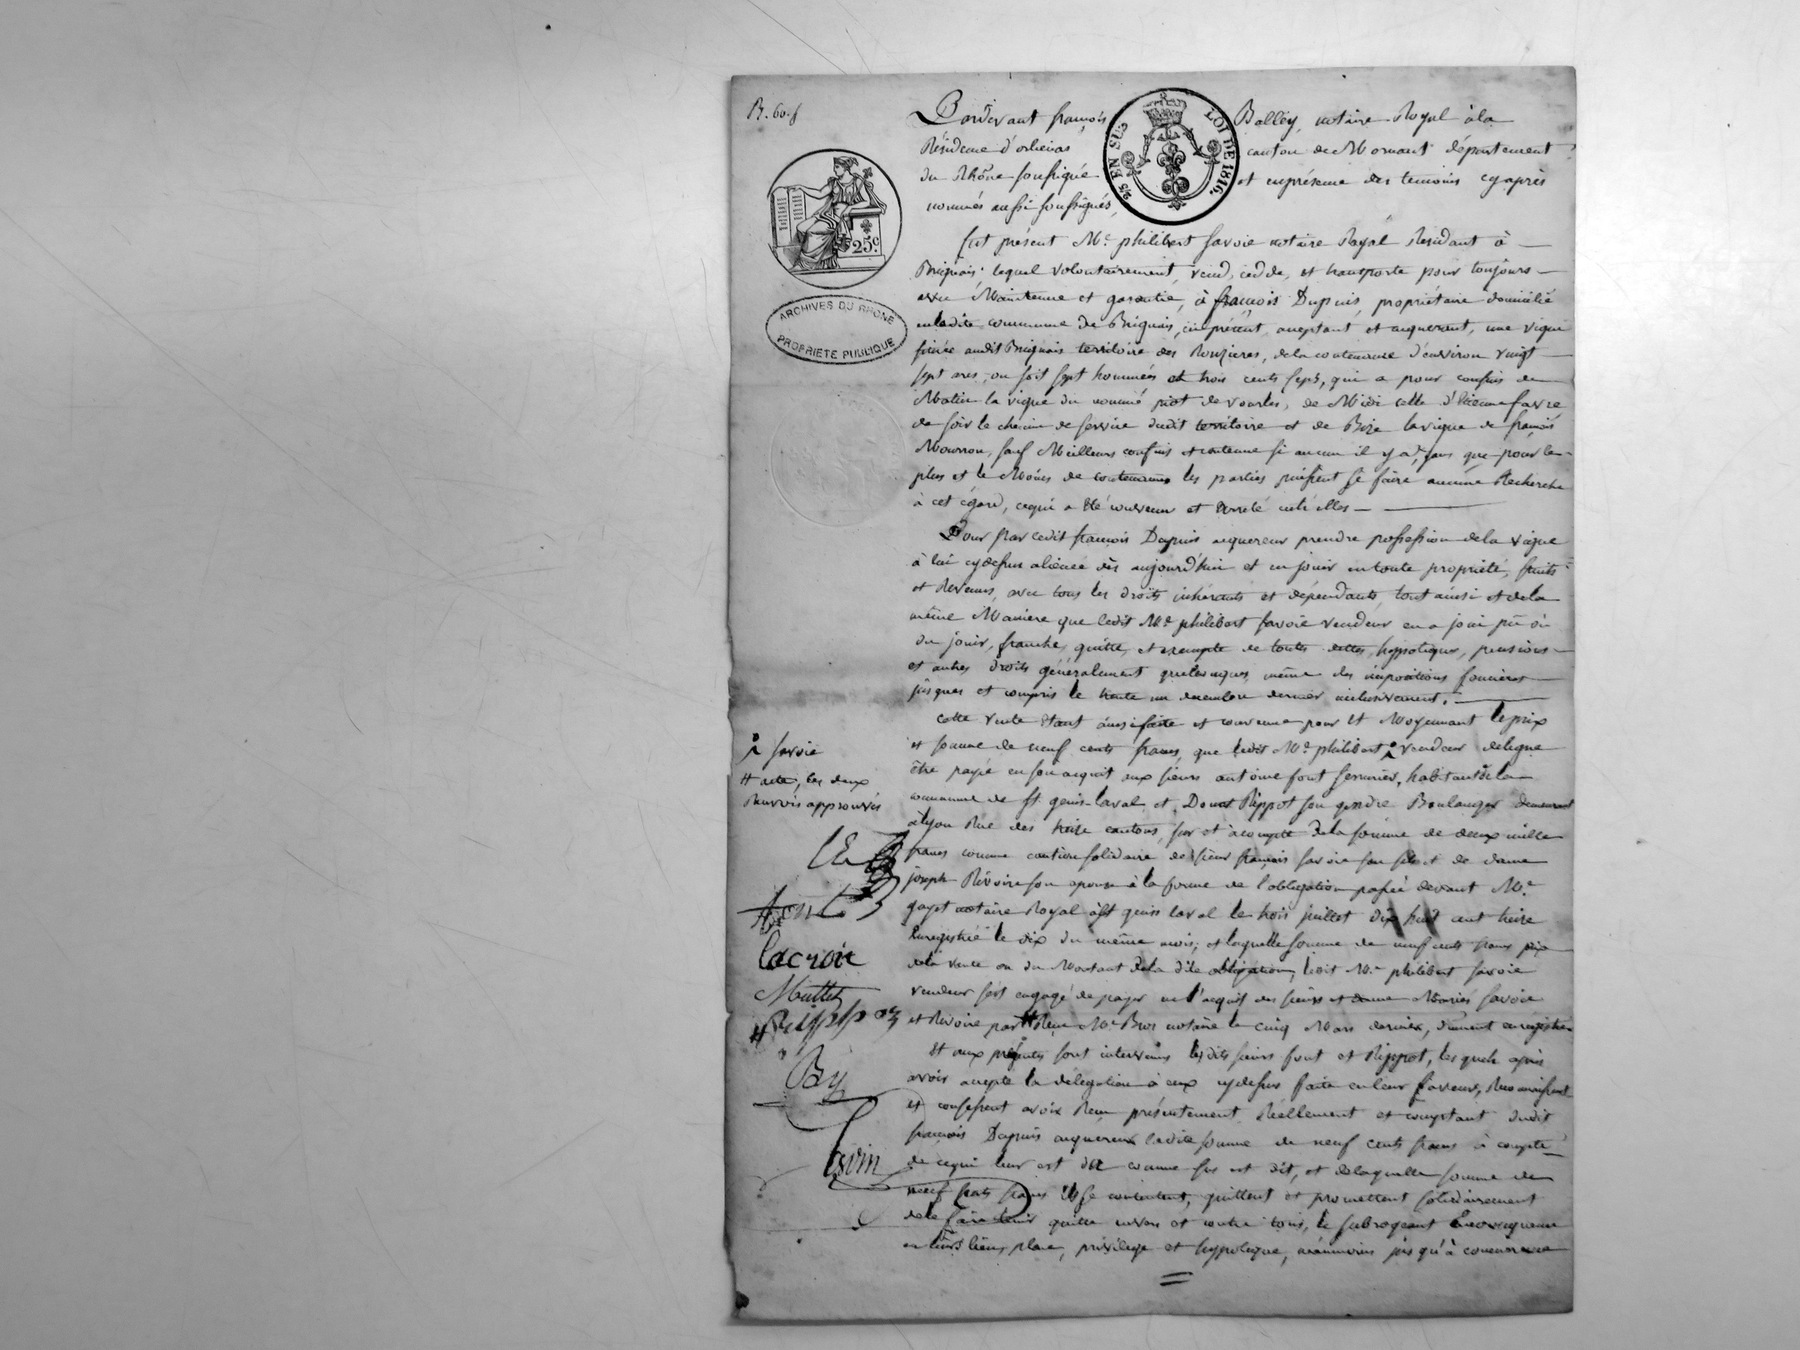 R. 60. f
Pardevant françois Bolley, notaire Royal à la
Résidence d'orlienas canton de Mornant département
du Rhône soussigné et en présence des temoins cy après
nommés aussi soussignés,
25 EN SUS
LOI DE 1816.
25 c
ARCHIVES DU RHONE
PROPRIETE PUBLIQUE
fut présent Me philibert Savoie notaire Royal Résidant à
Brignais. lequel volontairement, vend, cedde, et transporte pour toujours
avec Maintenue et garantie, à françois Dupuis, propriétaire domicilié
en ladite commune de Brignais, ici présent, acceptant et acquerant, une vigne
située audit Brignais territoire des Rouzieres, de la contenance d'environ vingt
sept ares, ou soit sept hommées et trois cents seps, qui a pour confins de
Matin la vigne du nommé piot de vourles, de Midi celle d'étienne favre
de soir le chemin de service dudit territoire et de Bize la vigne de françois
Mourron, sauf Meilleurs confins et contenue si aucun il y a, sans que pour le
plus et le Moins de contenance les parties puissent se faire aucune Recherche
à cet égard, ce qui a été convenu et arrêté entr'elles
Pour par ledit françois Dupuis acquereur prendre possession de la vigne
à lui cydessus alienée dès aujourd'hui et en jouir en toute propriété, fruits
et Revenus, avec tous les droits inhérents et dépendants, tout ainsi et de la
même Manière que ledit Me philibert Savoie vendeur en a joui pû ou
du jouir, franche, quitte, et exempte de toutes dettes, hypotèques, pensions
et autres droits généralement quelconques, même des impositions foncières
jusques et compris le trente un decembre dernier inclusivement.
cette vente étant ainsi faite et convenue pour et Moyennant le prix
et somme de neuf cents francs, que ledit Me philibert vendeur delegue
être payée en son acquit aux sieurs antoine font serrurier, habitant de la
commune de st. genis-laval, et Rippot son gendre Boulanger demeurant
à lyon Rue des treize cantons, sur et à compte de la somme de deux mille
francs comme caution solidaire de sieur françois Savoie son fils et de dame
joseph Revoire son epouse à la forme de l'obligation passée devant Me
gayet notaire Royal à st genis laval le trois juillet dix huit cent treize
Enregistrée le dix du même mois; et laquelle somme de neuf cents francs prix
de la vente ou du Montant de la dite obligation, ledit Me philibert Savoie
vendeur s'est engagé de payer en l'acquit des sieurs et dame Mariés Savoie
et Revoire par Reçu Me Bros notaire le cinq Mars dernier, dûment enregistré
Et aux présentes sont intervenus lesdits sieurs font et Rippot, lesquels après
avoir accepté la délégation à eux cydessus faite en leur faveur, Reconnaissent
et confessent avoir Reçu présentement Réellement et comptant dudit
françois Dupuis acquereur ladite somme de neuf cents francs à compte
de ce qui leur est dû comme sus est dit, et de laquelle somme de
neuf cents francs ils se contentent, quittent et promettent solidairement
de le faire tenir quitte envers et contre tous, le subrogeant
en leurs lieu, place, privilège et hypotèque, néanmoins jusqu'à concurrence
Savoie
# acte, les deux
Renvois approuvés
font
lacroix
Rippoz
By